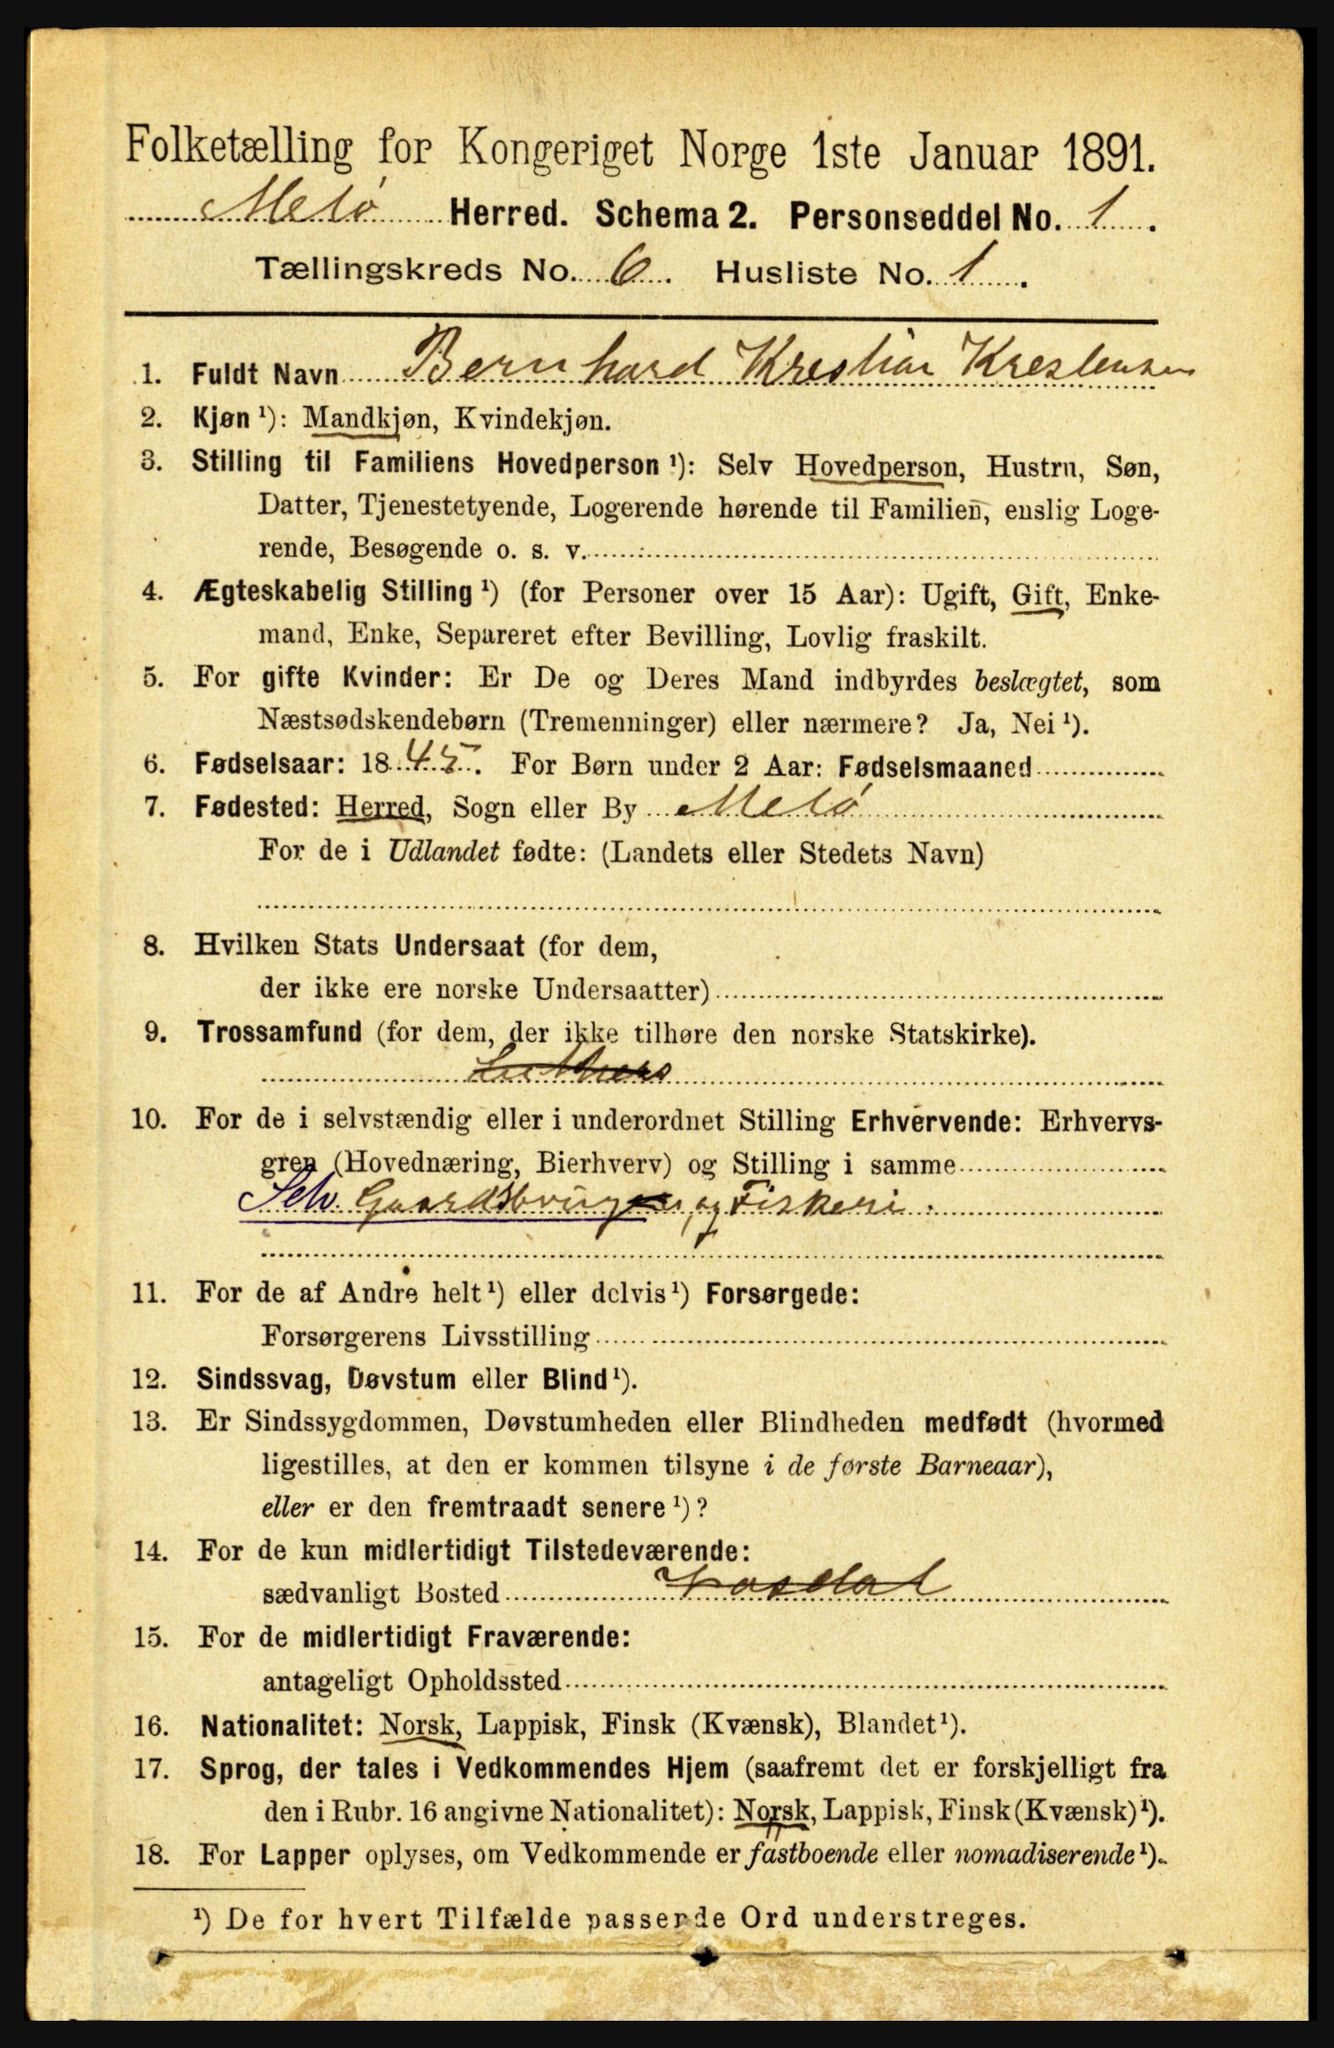 Folketælling for Kongeriget Norge 1ste Januar 1891.
Melø Herred. Schema 2. Personseddel No. 1.
Tællingskreds No. 6. Husliste No. 1.
1. Fuldt Navn Bernhard Krestian Krestensen
2. Kjøn ¹): Mandkjøn, Kvindekjøn.
3. Stilling til Familiens Hovedperson ¹): Selv Hovedperson, Hustru, Søn,
Datter, Tjenestetyende, Logerende hørende til Familien, enslig Loge-
rende, Besøgende o. s. v.
4. Ægteskabelig Stilling ¹) (for Personer over 15 Aar): Ugift, Gift, Enke-
mand, Enke, Separeret efter Bevilling, Lovlig fraskilt.
5. For gifte Kvinder: Er De og Deres Mand indbyrdes beslægtet, som
Næstsødskendebørn (Tremenninger) eller nærmere? Ja, Nei ¹).
6. Fødselsaar: 1845. For Børn under 2 Aar: Fødselsmaaned
7. Fødested: Herred, Sogn eller By Melø
For de i Udlandet fødte: (Landets eller Stedets Navn)
8. Hvilken Stats Undersaat (for dem,
der ikke ere norske Undersaatter)
9. Trossamfund (for dem, der ikke tilhøre den norske Statskirke).
10. For de i selvstændig eller i underordnet Stilling Erhvervende: Erhvervs-
gren (Hovednæring, Bierhverv) og Stilling i samme
Selv. Gaardbruger, og Fiskeri.
11. For de af Andre helt ¹) eller delvis ¹) Forsørgede:
Forsørgerens Livsstilling
12. Sindssvag, Døvstum eller Blind ¹).
13. Er Sindssygdommen, Døvstumheden eller Blindheden medfødt (hvormed
ligestilles, at den er kommen tilsyne i de første Barneaar),
eller er den fremtraadt senere ¹)?
14. For de kun midlertidigt Tilstedeværende:
sædvanligt Bosted
15. For de midlertidigt Fraværende:
antageligt Opholdssted
16. Nationalitet: Norsk, Lappisk, Finsk (Kvænsk), Blandet ¹).
17. Sprog, der tales i Vedkommendes Hjem (saafremt det er forskjelligt fra
den i Rubr. 16 angivne Nationalitet): Norsk, Lappisk, Finsk (Kvænsk) ¹).
18. For Lapper oplyses, om Vedkommende er fastboende eller nomadiserende ¹).
¹) De for hvert Tilfælde passende Ord understreges.